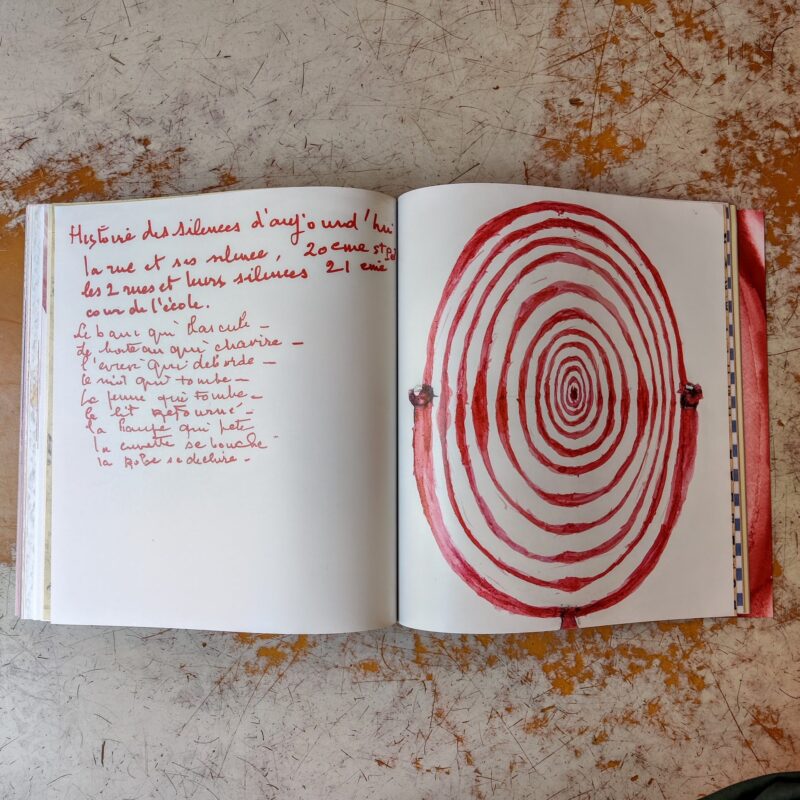 Histoire des silences d'aujourd'hui
la rue et ses silence, 20eme st
les 2 rues et leurs silences 21 eme
cour de l'école.
Le banc qui bascule –
Le bateau qui chavire –
l'évier qui déborde –
le qui tombe –
La femme qui tombe –
le lit retourné –
la lampe qui pète
la cuvette se bouche –
la Robe se déchire –